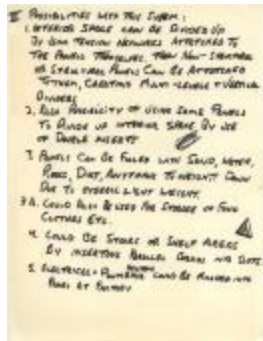 II Possibilities with this system:
1. Interior space can be divided up
by using tension networks attached to
the panels themselves. Then non-structural
or structural panels can be attached
to them, creating multi-levels + vertical
dividers
2. Also possibility of using same panels
to divide up interior space by use
of double inserts
3. Panels can be filled with sand, water,
rocks, dirt, anything to weight down
due to overall light weight.
3A. Could also be used for storage of food
clothes etc.
4. Could be stairs or shelf areas
by inserting parallel boards into slots.
5. Electrical + plumbing could be molded into
panel at factory